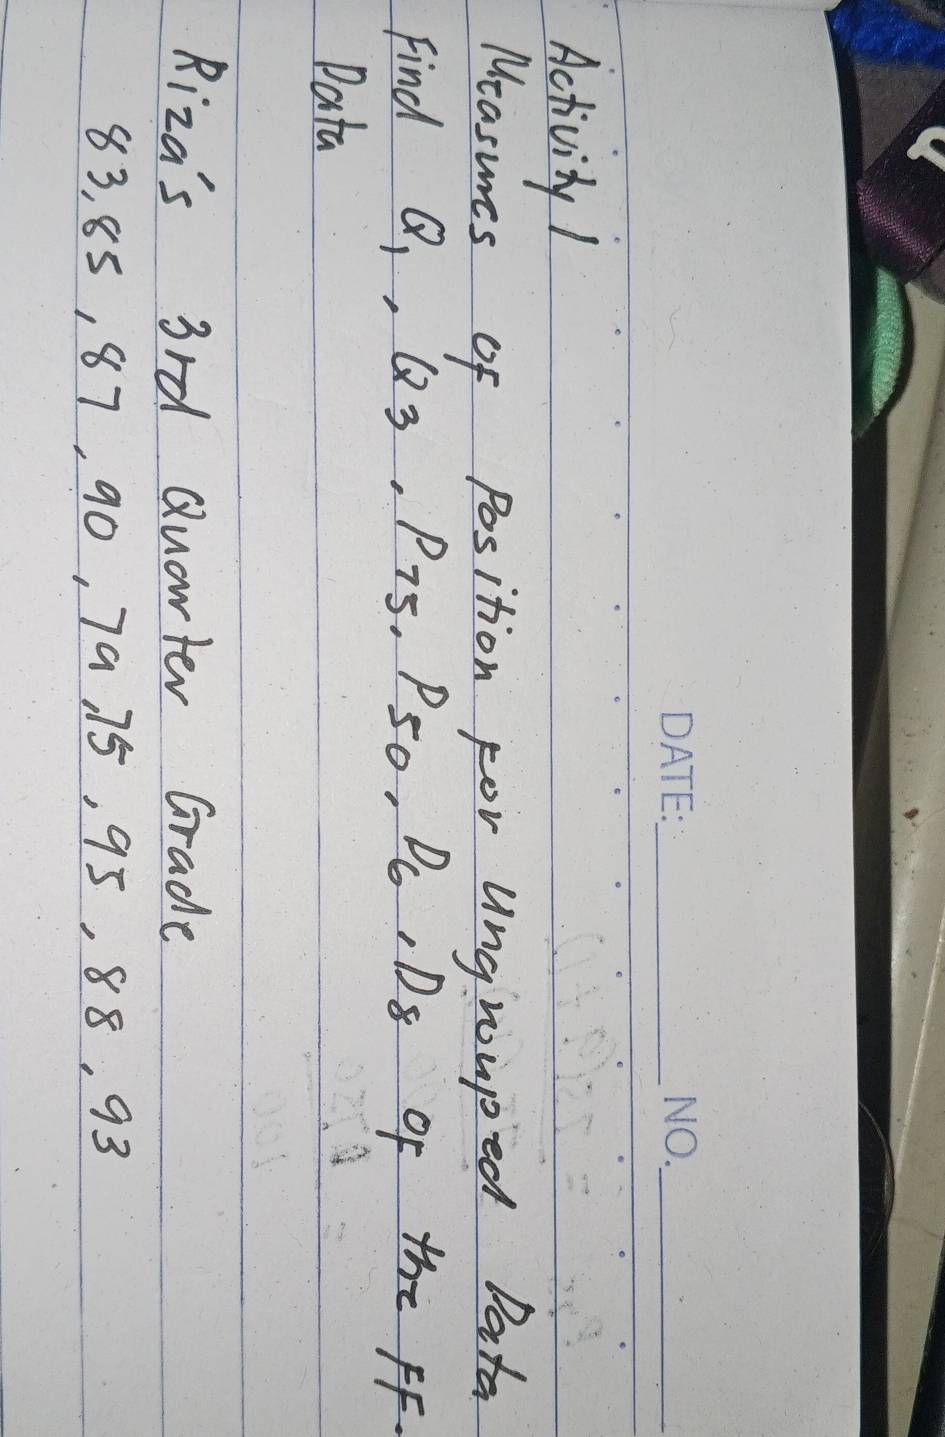 DATE: NO.
Activity 1
Measures of Position for Ungrouped Data
Find Q1, Q3, P75, P50, D6, D8 of the FF.
Data
Riza's 3rd Quarter Grade
83, 85, 87, 90, 79, 75, 95, 88, 93